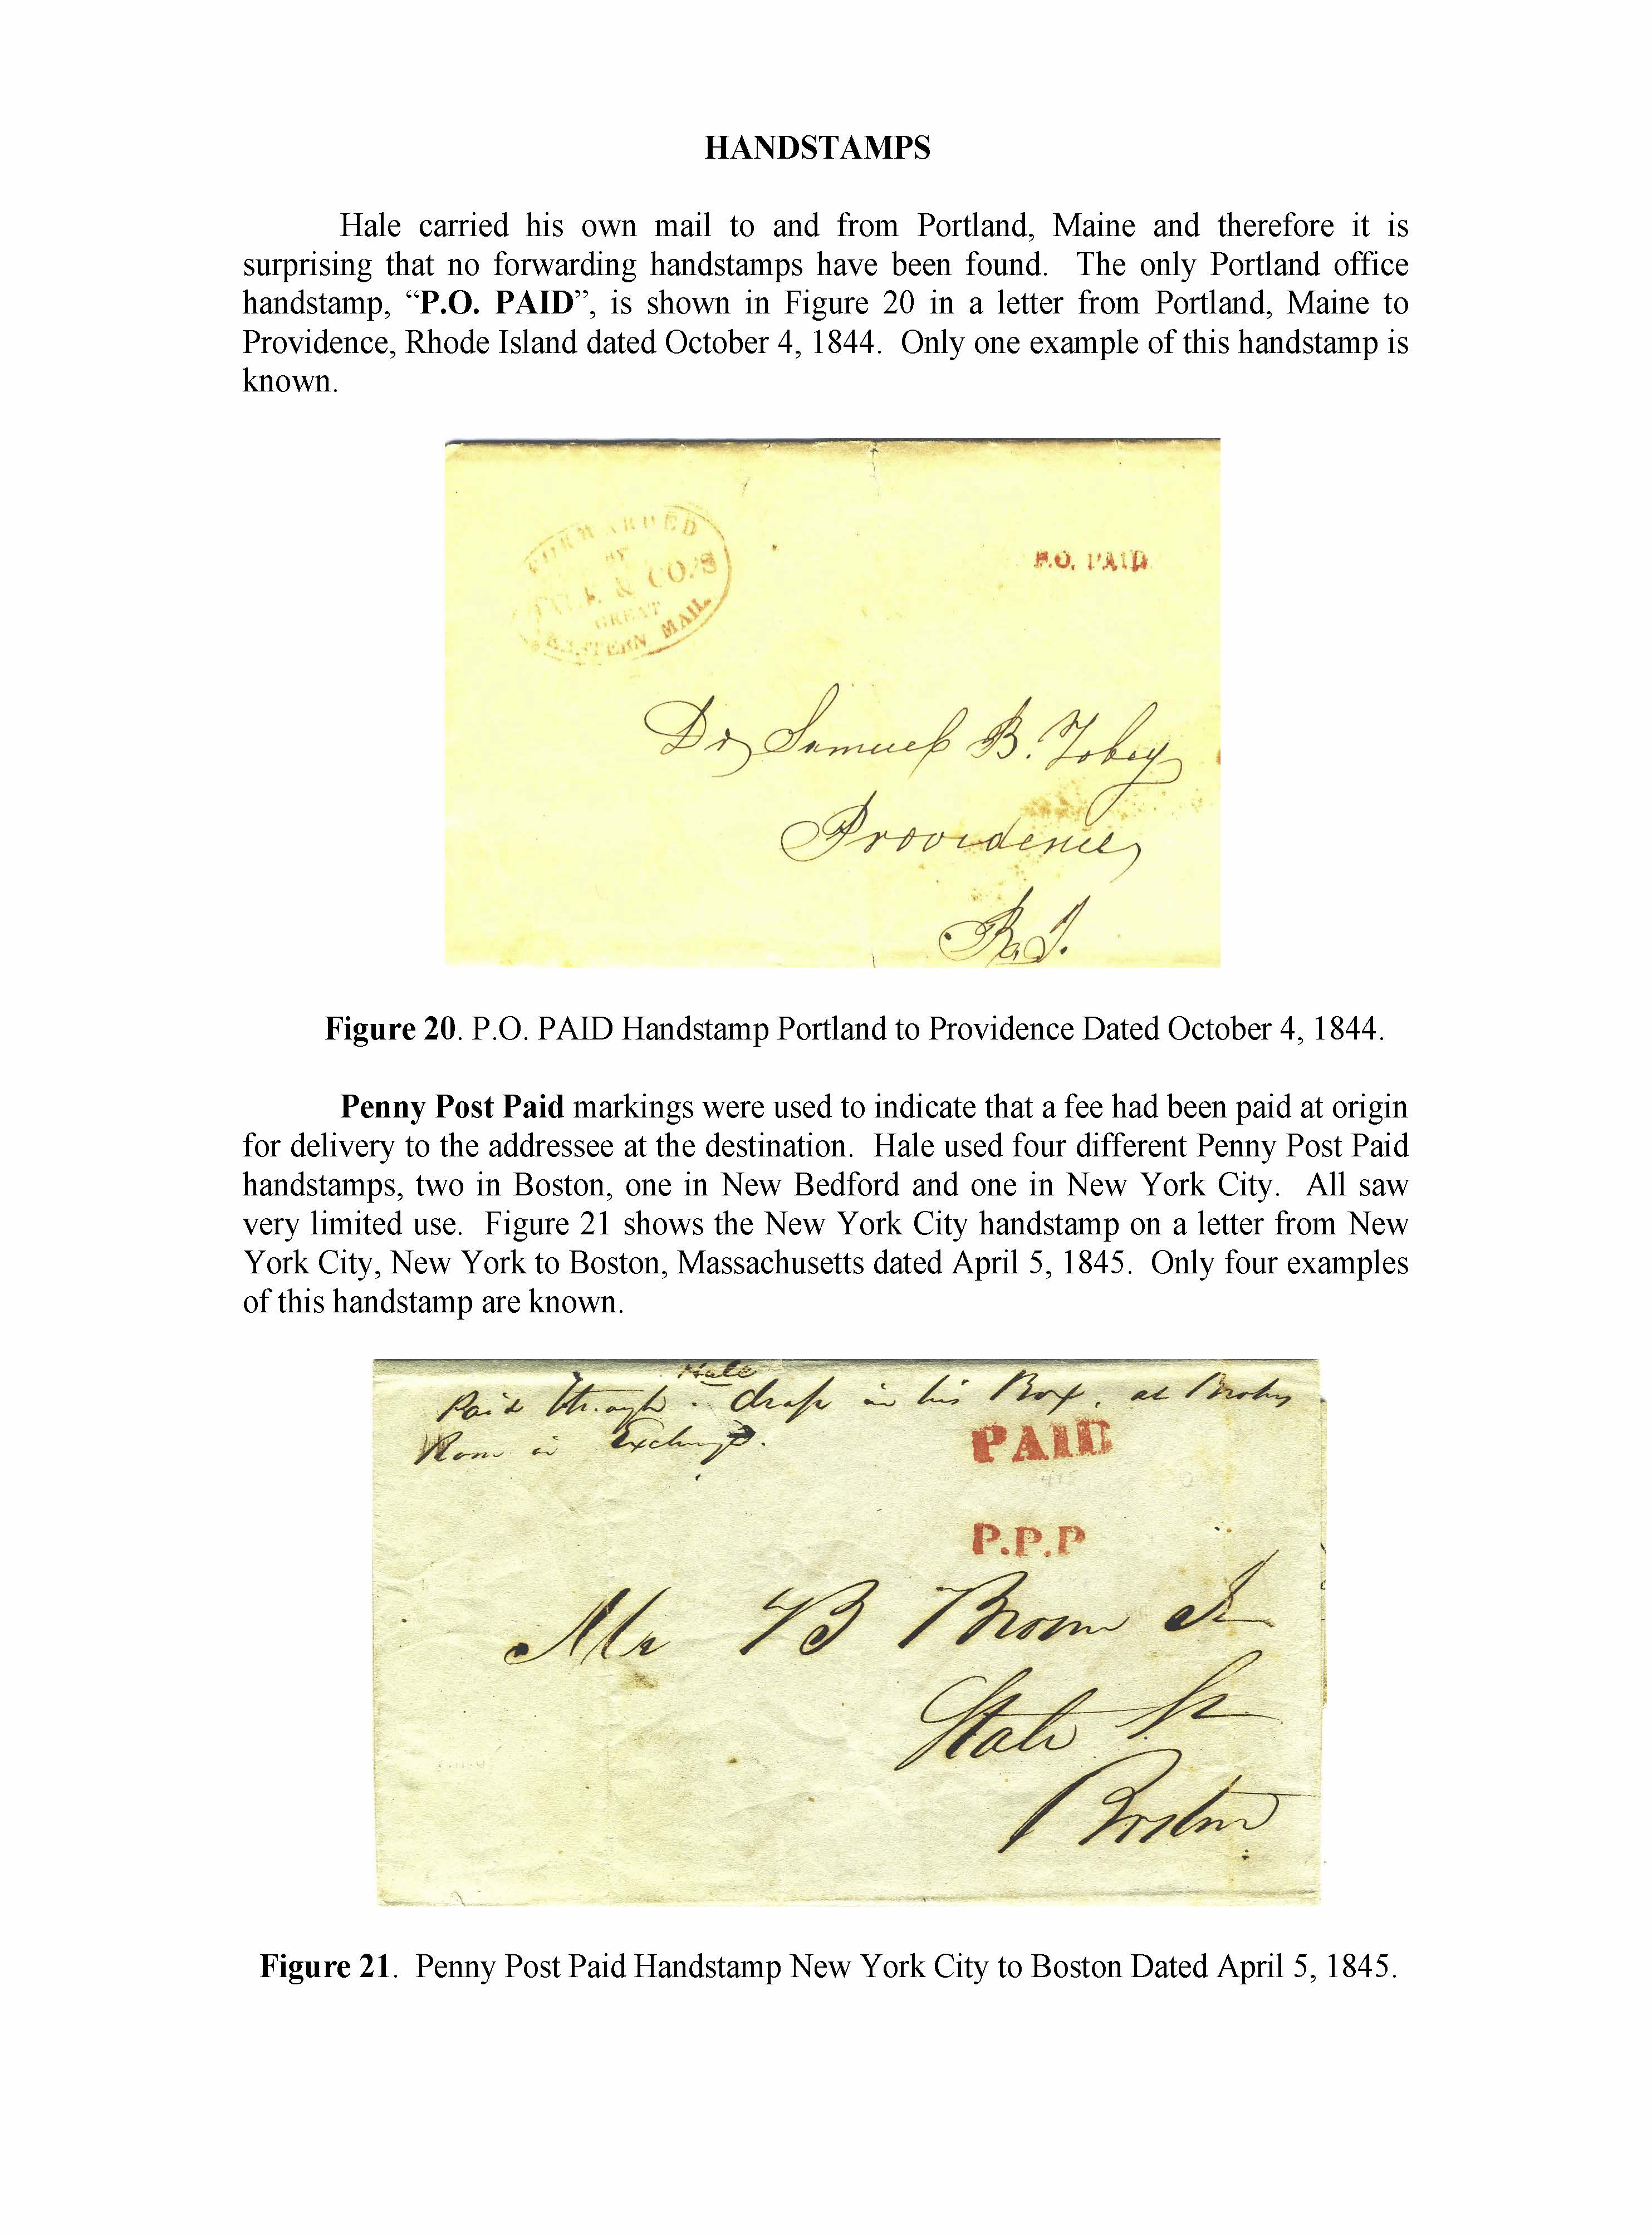 HANDSTAMPS
Hale carried his own mail to and from Portland, Maine and therefore it is
surprising that no forwarding handstamps have been found. The only Portland office
handstamp, “P.O. PAID”, is shown in Figure 20 in a letter from Portland, Maine to
Providence, Rhode Island dated October 4, 1844. Only one example of this handstamp is
known.
FORWARDED
BY
HALE & CO.'S
GREAT
EASTERN MAIL
P.O. PAID
Dr Samuel B. Tobey
Providence,
R.I.
Figure 20. P.O. PAID Handstamp Portland to Providence Dated October 4, 1844.
Penny Post Paid markings were used to indicate that a fee had been paid at origin
for delivery to the addressee at the destination. Hale used four different Penny Post Paid
handstamps, two in Boston, one in New Bedford and one in New York City. All saw
very limited use. Figure 21 shows the New York City handstamp on a letter from New
York City, New York to Boston, Massachusetts dated April 5, 1845. Only four examples
of this handstamp are known.
Hale
Paid through drop in his Box, at
Room in Exchange.
PAID
P.P.P
Mr B Brown Jr
State St
Boston
Figure 21. Penny Post Paid Handstamp New York City to Boston Dated April 5, 1845.